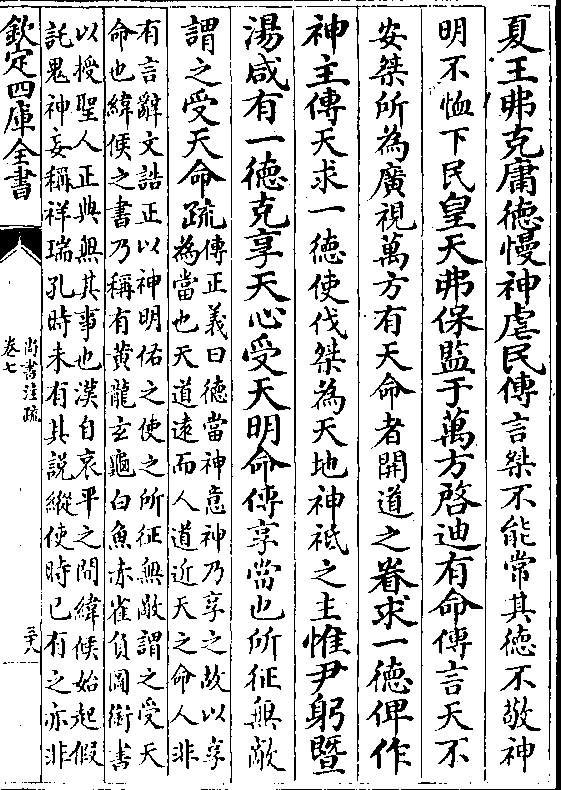 夏王弗克庸德慢神虐民傳言桀不能常其德不敬神
明不恤下民皇天弗保監于萬方啓迪有命傳言天不
安桀所為廣視萬方有天命者開道之眷求一德俾作
神主傳天求一德使伐桀為天地神祇之主惟尹躬暨
湯咸有一德克享天心受天明命傳享當也所征無敵
謂之受天命疏傳正義曰德當神意神乃享之故以享
為當也天道遠而人道近天之命人非
有言辭文誥正以神明佑之使之所征無敵謂之受天
命也緯候之書乃稱有黄龍玄龜白魚赤雀負圖銜書
以授聖人正典無其事也漢自哀平之間緯候始起假
託鬼神妄稱祥瑞孔時未有其說縱使時已有之亦非
欽定四庫全書
尚書注疏
卷七
三十八